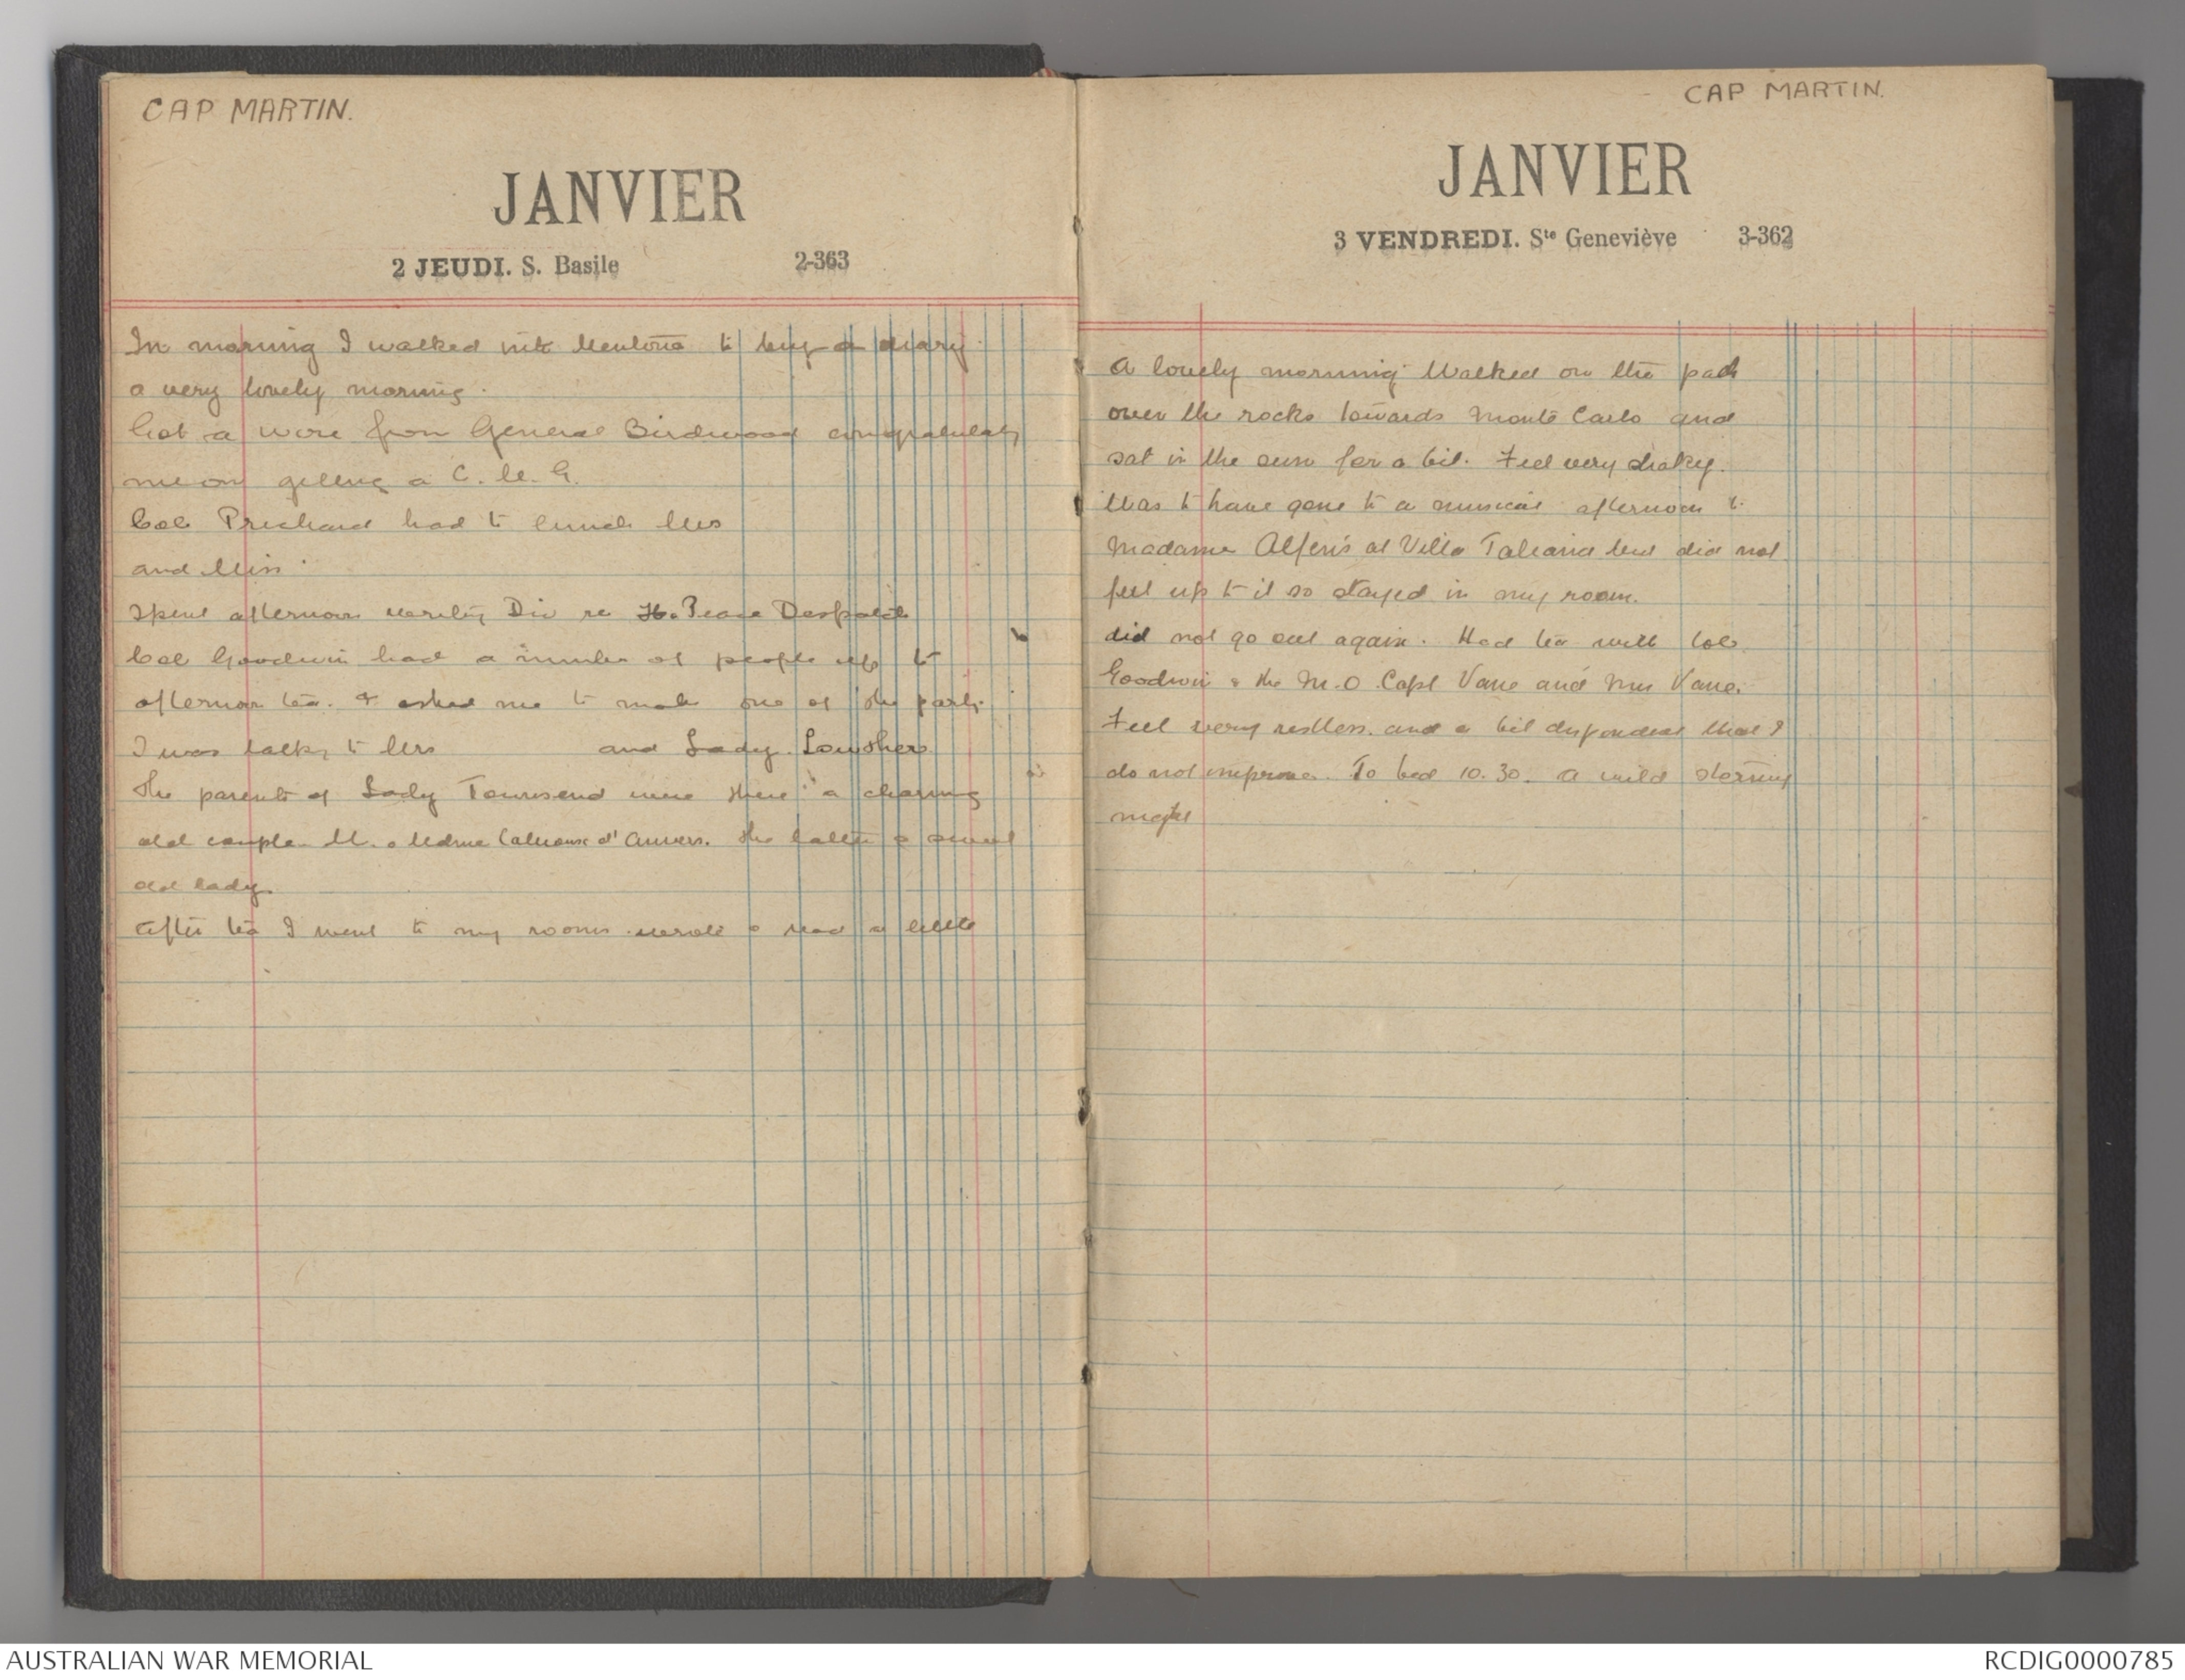 CAP MARTIN.
JANVIER
2 JEUDI. S. Basile 2-363
In morning I walked into Mentone to buy a diary.
a very lovely morning.
Got a wire from General Birdwood congratulatg
me on getting a C.M.G.
Col Prichard had to lunch Mrs
and Miss
Spent afternoon writing Div re Peace Despatch
Col Goodwin had a number of people up to
afternoon tea. & asked me to make one of the party.
I was talkg to Mrs and Lady Lowther
the parents of Lady Townsend were there a charming
old couple M. & Mdme Cahuonx d' Anvers. the latter a sweet
old lady.
After tea I went to my room wrote & read a little
CAP MARTIN.
JANVIER
3 VENDREDI. Ste Geneviève 3-362
A lovely morning. Walked on the path
over the rocks towards Monte Carlo and
sat in the sun for a bit. Feel very shaky.
Was to have gone to a musical afternoon to
Madame Alferi's at Villa but did not
feel up to it so stayed in my room.
did not go out again. Had tea with Col
Goodwin & the M.O Capt Vane and Mrs Vane.
Feel very restless. and a bit despondent that I
do not improve. To bed 10.30. a wild stormy
night
AUSTRALIAN WAR MEMORIAL
RCDIG0000785